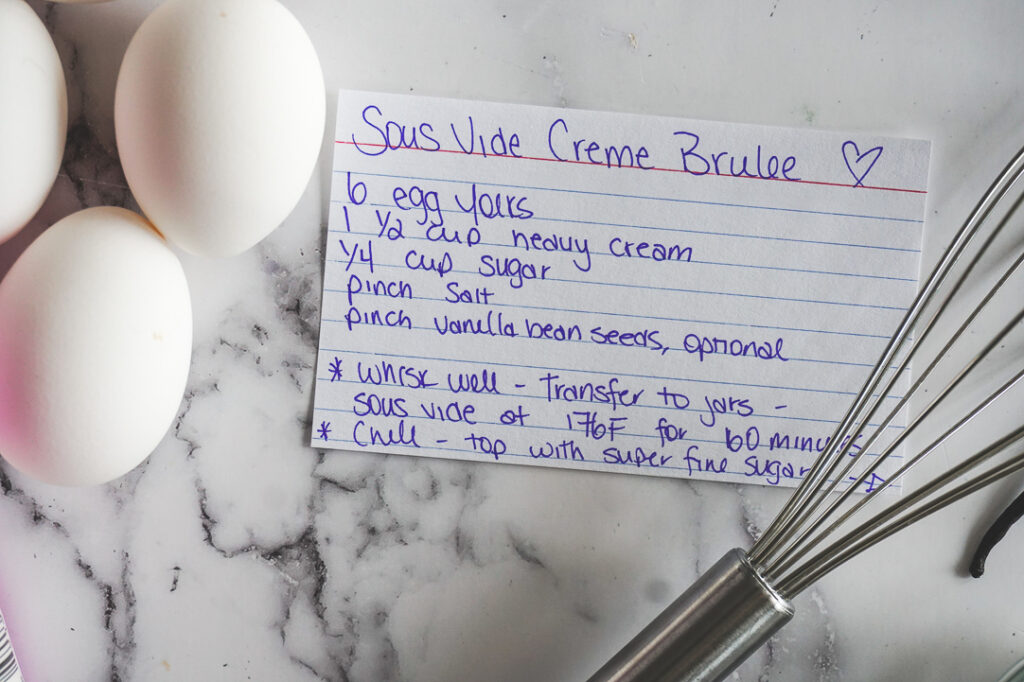 Sous Vide Creme Brulee ♡
6 egg yolks
1 1/2 cup heavy cream
1/4 cup sugar
pinch salt
pinch vanilla bean seeds, optional
* whisk well - transfer to jars -
sous vide at 176F for 60 minutes
* Chill - top with super fine sugar -